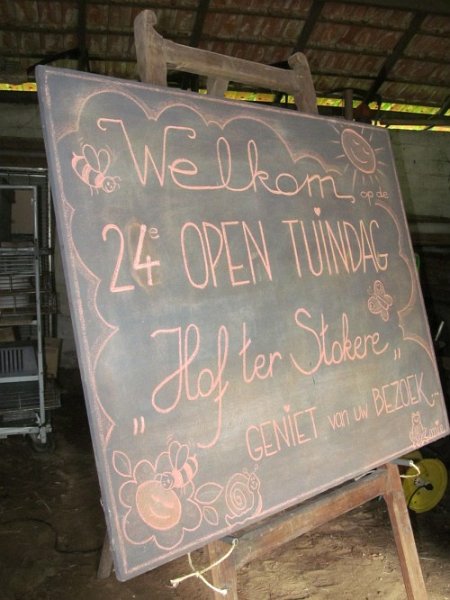 Welkom op de
24e OPEN TUINDAG
„Hof ter Stokere”
GENIET van uw BEZOEK